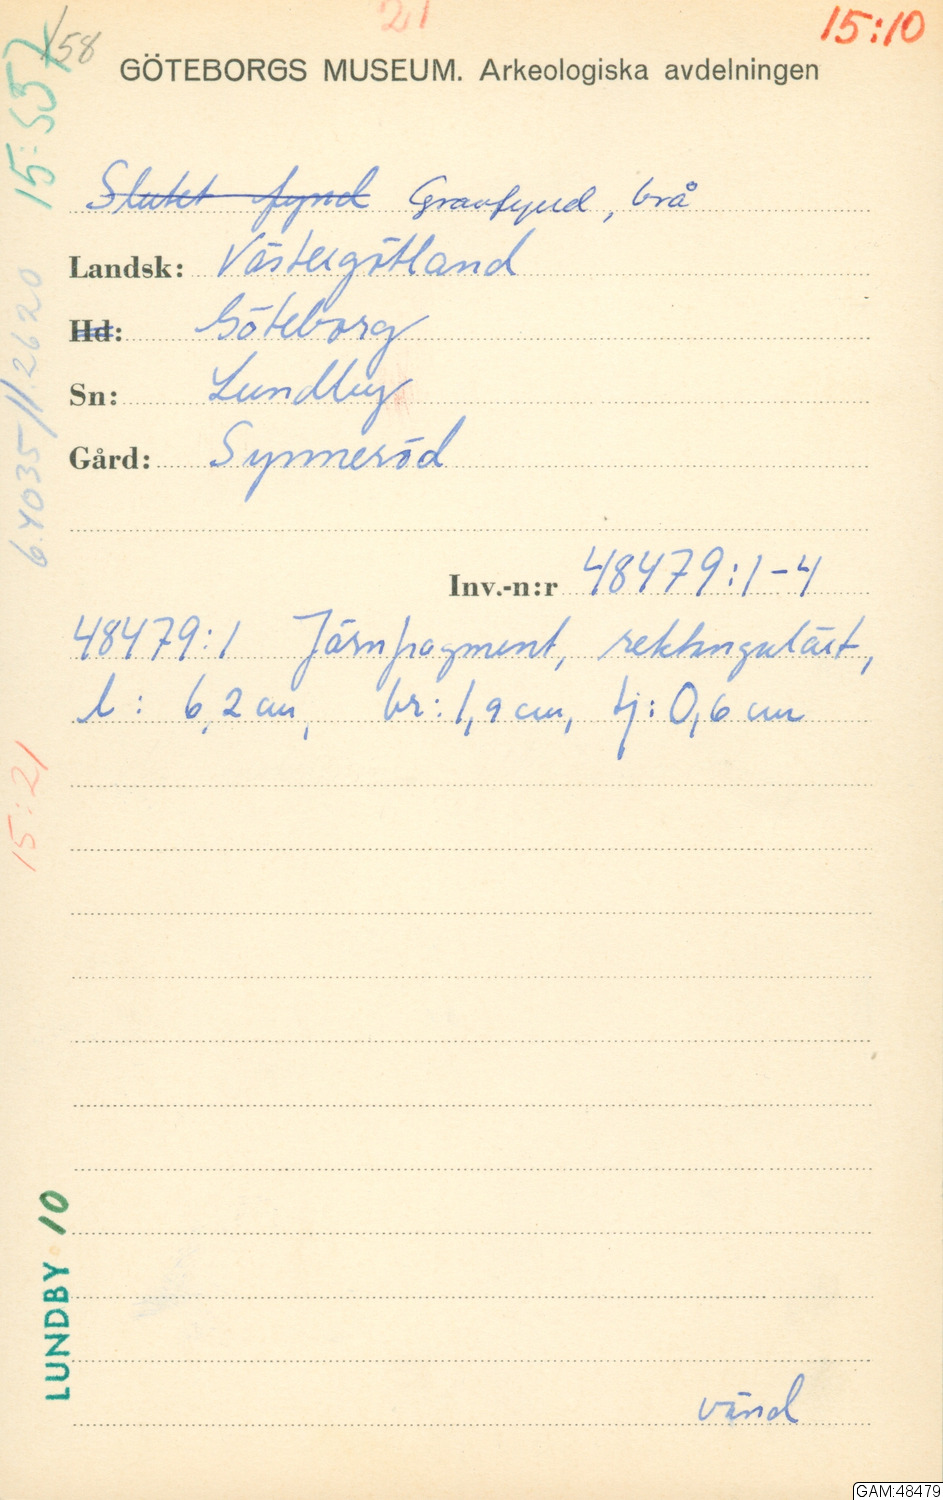 21
15:10
/58
GÖTEBORGS MUSEUM. Arkeologiska avdelningen
15:57
Slutet fynd Gravfynd, brå
Landsk: Västergötland
Hd: Göteborg
Sn: Lundby
Gård: Synneröd
6.4035 // 2620
Inv.-n:r 48479:1-4
48479:1 Järnfragment, rektangulärt,
l: 6,2 cm, br: 1,9 cm, tj: 0,6 cm
15:21
LUNDBY 10
vänd
GAM:48479